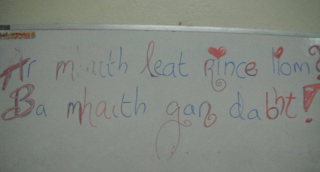 Ar mhaith leat rince liom?
Ba mhaith gan dabht!